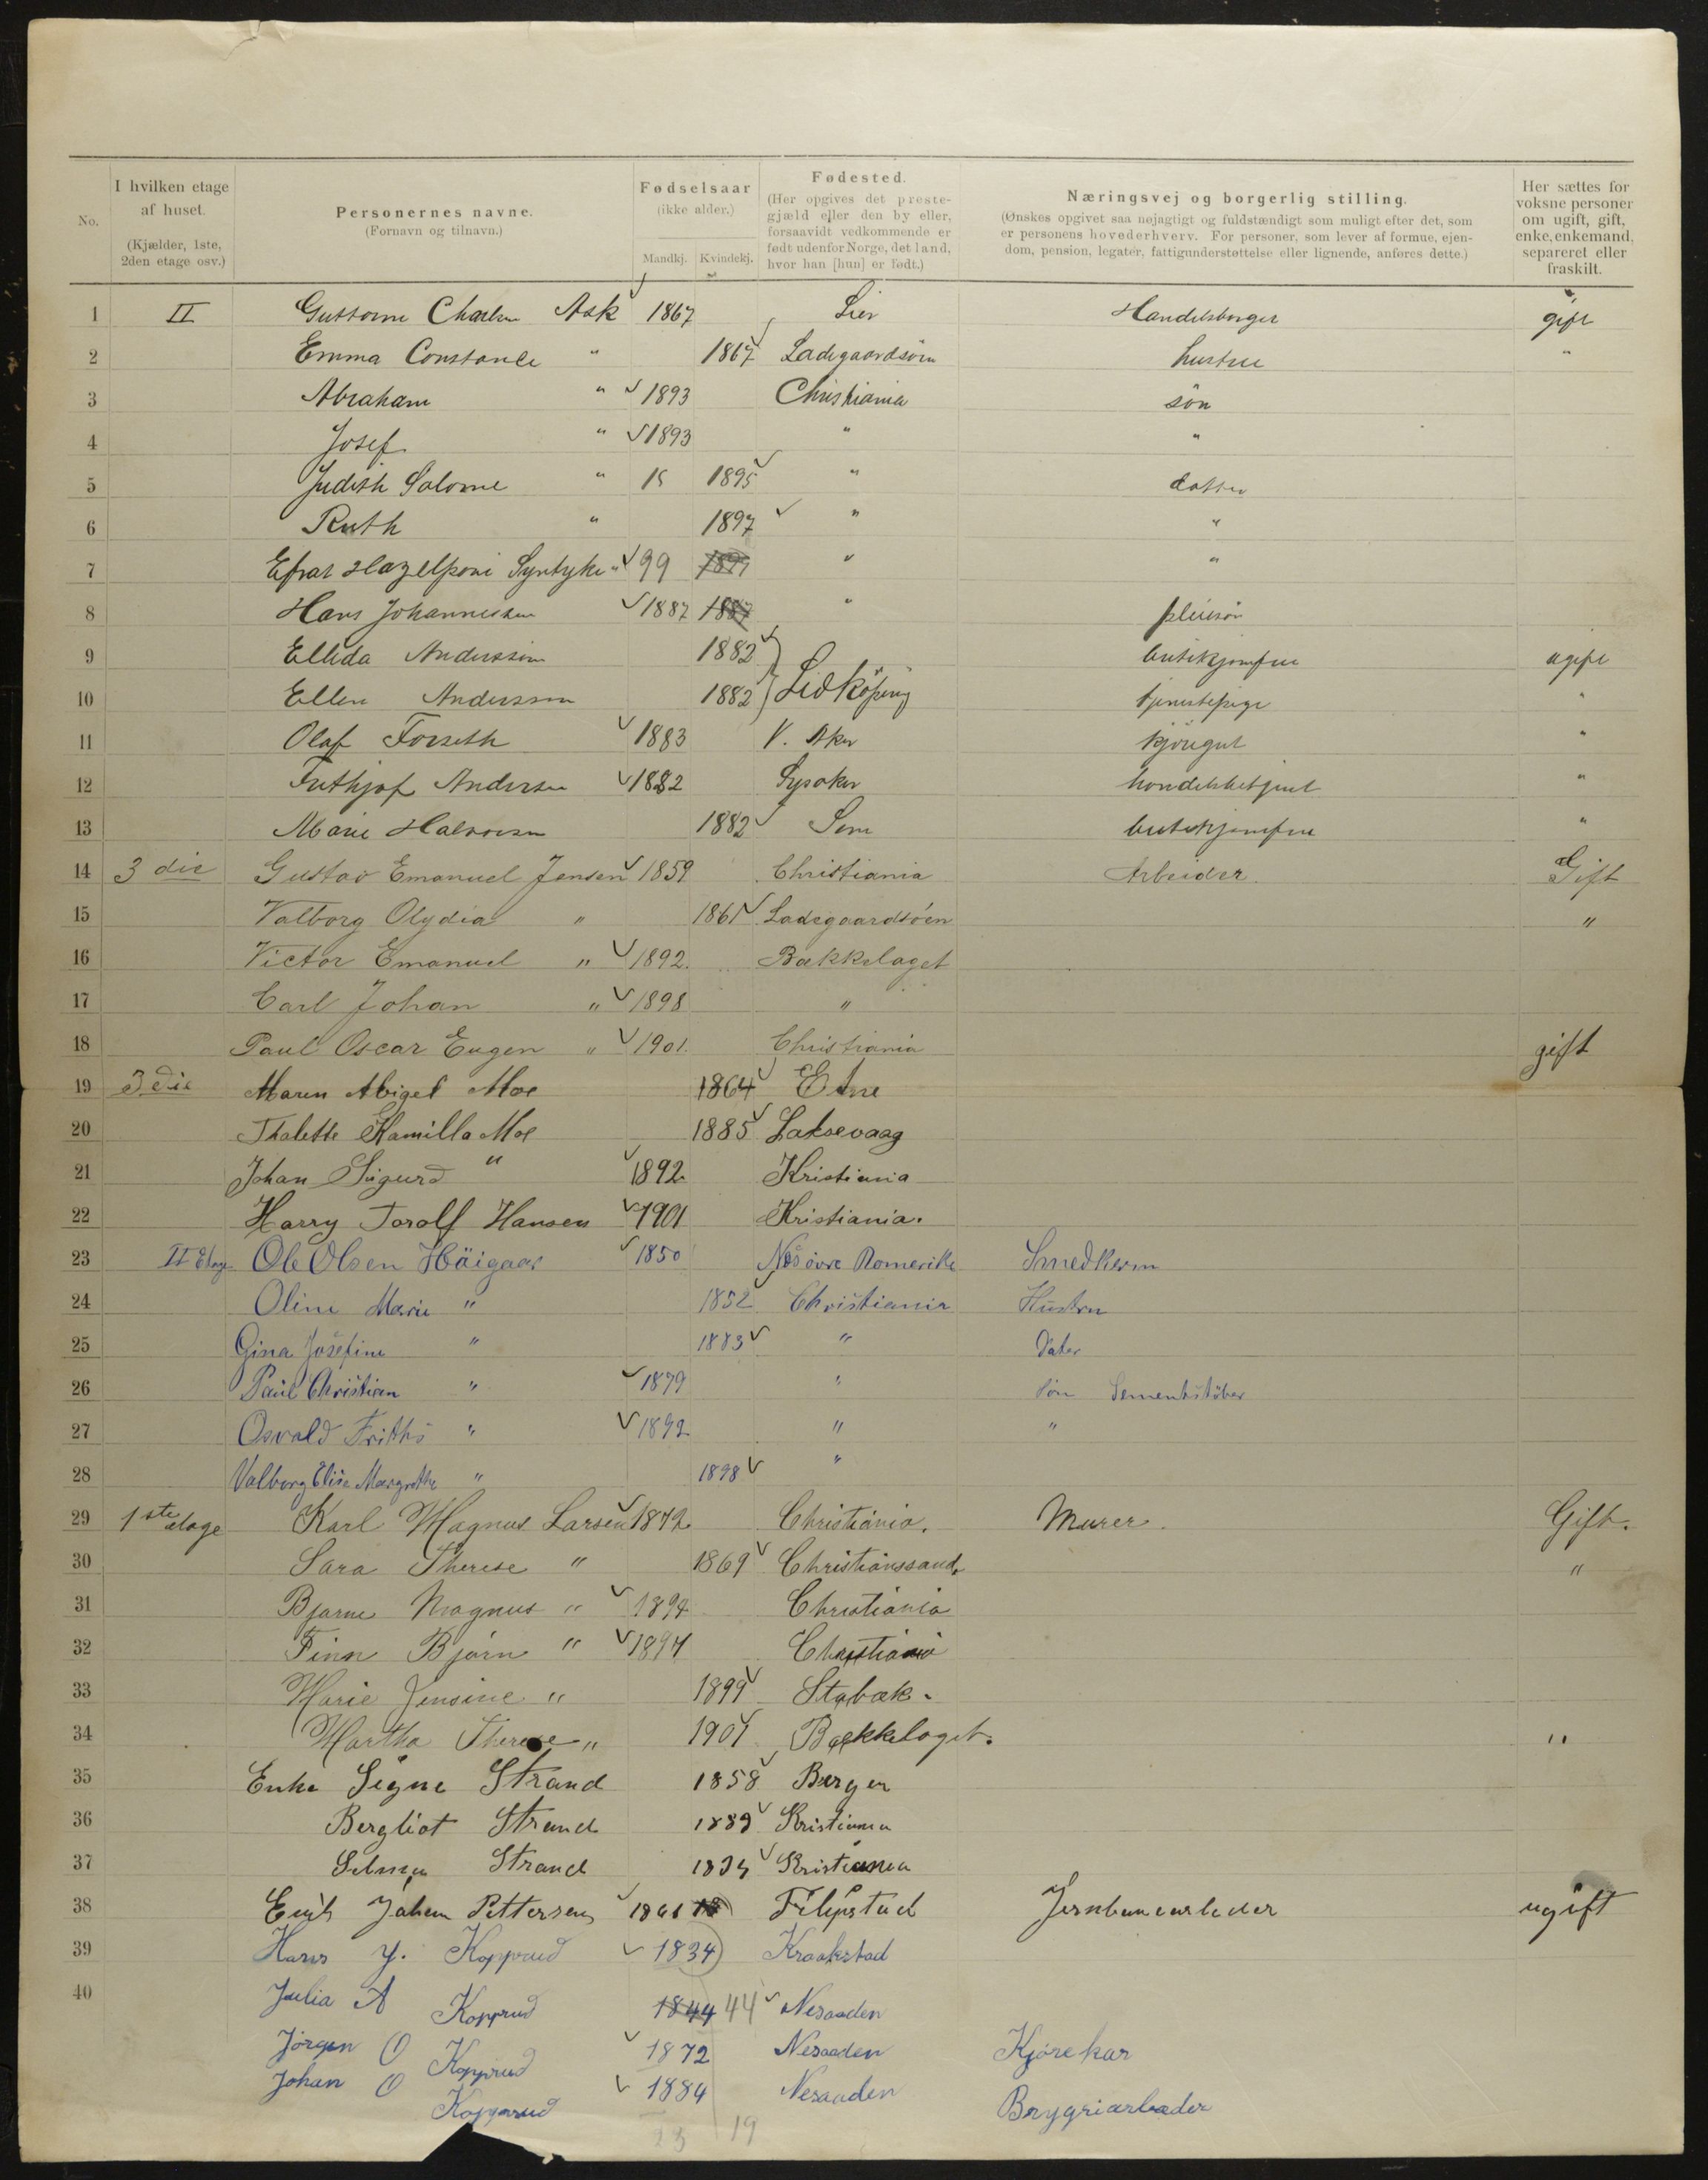 No.
I hvilken etage af huset.
(Kjælder, 1ste, 2den etage osv.)
Personernes navne.
(Fornavn og tilnavn.)
Fødselsaar
(ikke alder.)
Mandkj. Kvindekj.
Fødested.
(Her opgives det prestegjæld eller den by eller, forsaavidt vedkommende er født udenfor Norge, det land, hvor han [hun] er født.)
Næringsvej og borgerlig stilling.
(Ønskes opgivet saa nøjagtigt og fuldstændigt som muligt efter det, som er personens hovederhverv. For personer, som lever af formue, ejendom, pension, legater, fattigunderstøttelse eller lignende, anføres dette.)
Her sættes for voksne personer om ugift, gift, enke, enkemand, separeret eller fraskilt.
1 II Guttorm Charles Ask 1867 Lier Handelsborger gift
2 Emma Constance " 1867 Ladegaardsøen hustru "
3 Abraham " 1893 Christiania søn
4 Josef " 1893 " "
5 Judith Salome " 18 1895 " datter
6 Ruth " 1897 " "
7 Efrat Hazelponi Syntyke " 99 1899 " "
8 Hans Johannessen 1887 1887 " pleiesøn
9 Ellida Andersson 1882 butikjomfru ugift
10 Ellen Andersson 1882 Lidköping tjenestepige "
11 Olaf Forseth 1883 V. Aker kjøregut "
12 Frithjof Andersen 1882 Lysaker handelsbetjent "
13 Marie Halvorsen 1882 Sem butikjomfru "
14 3 die Gustav Emanuel Jensen 1859 Christiania Arbeider Gift
15 Valborg Olydia " 1861 Ladegaardsøen "
16 Victor Emanuel " 1892. Bækkelaget
17 Carl Johan " 1898 "
18 Paul Oscar Eugen " 1901. Christiania gift
19 3 die Maren Abigel Moe 1864 Etne
20 Thalette Kamilla Moe 1885 Laksevaag
21 Johan Sigurd " 1892 Kristiania
22 Harry Torolf Hansen 1901 Kristiania.
23 II Etage Ole Olsen Häigaar 1850 Nes övre Romerike Smedkerm
24 Oline Marie " 1852 Christiania Hustru
25 Gina Josefine " 1883 " Dater
26 Paul Christian " 1879 " søn Sementstöber
27 Osvald Friths " 1892 " "
28 Valborg Elise Margrethe " 1898 "
29 1ste etage Karl Magnus Larsen 1872 Christiania. Murer. Gift.
30 Sara Therese " 1869 Christianssand. "
31 Bjarne Magnus " 1894 Christiania
32 Finn Bjørn " 1894 Christiania
33 Marie Jensine " 1899 Stabæk.
34 Martha Therese " 1901 Bækkelaget. "
35 Enke Signe Strand 1858 Bergen
36 Bergliot Strand 1889 Kristiania
37 Selma Strand Kristiania
38 Erik Johan Pettersen 1861 18 Filipstad Jernbanearbeder ugift
39 Hans J. Kopprud 1834 Kraakstad
40 Julia A Kopprud 1844 44 Nesodden
Jörgen O Kopprud 1872 Nesodden Kjørekar
Johan O Kopprud 1884 Nesodden Brygriarbæder
23 19